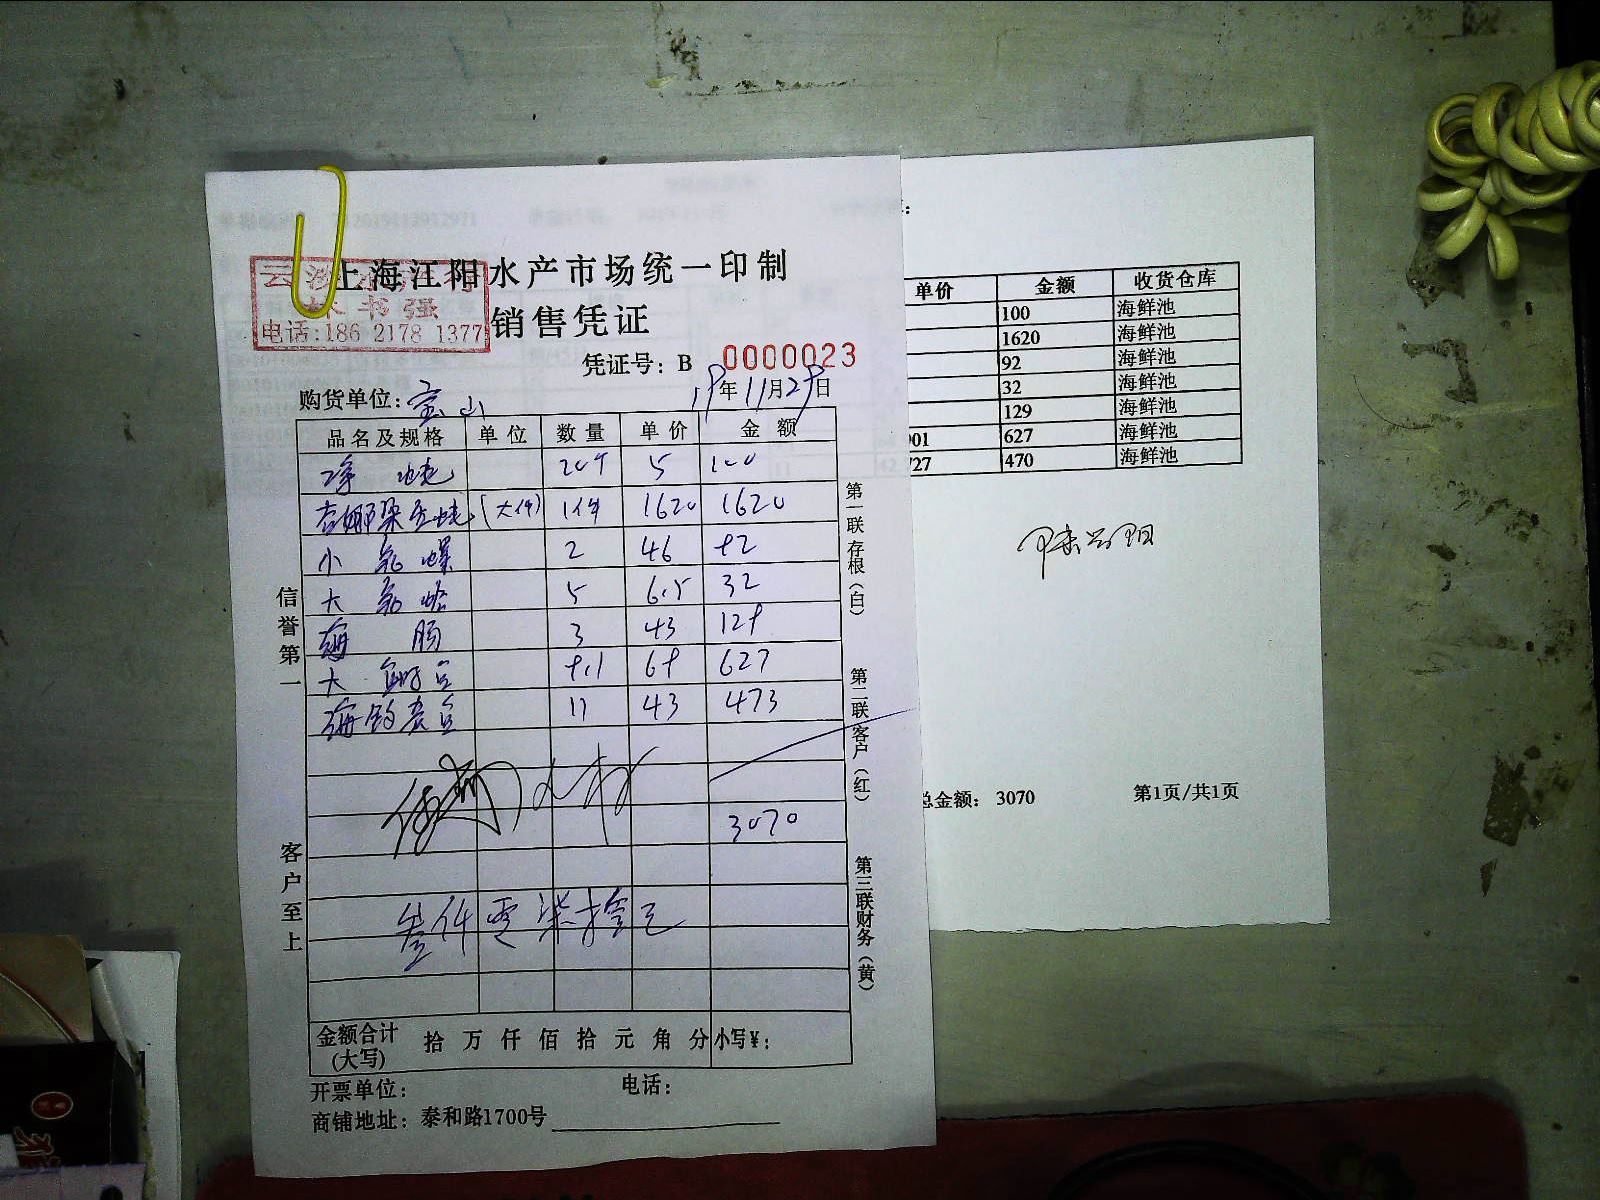 上海江阳水产市场统一印制
销售凭证
书强
电话:186 2178 1377
凭证号: B 0000023
购货单位: 宝山 19年11月29日
品名及规格 单位 数量 单价 金额
净 蛏 20斤 5 100
(大件) 1件 1620 1620
小 螺 2 46 92
大 蛤 5 6.5 32
海 肠 3 43 129
大 9.1 69 627
海 11 43 473
3070
叁仟零柒拾元
金额合计(大写) 拾 万 仟 佰 拾 元 角 分 小写¥:
开票单位: 电话:
商铺地址: 泰和路1700号
信誉第一
客户至上
第一联 存根(白)
第二联 客户(红)
第三联 财务(黄)
单价 金额 收货仓库
100 海鲜池
1620 海鲜池
92 海鲜池
32 海鲜池
129 海鲜池
901 627 海鲜池
727 470 海鲜池
总金额: 3070 第1页/共1页